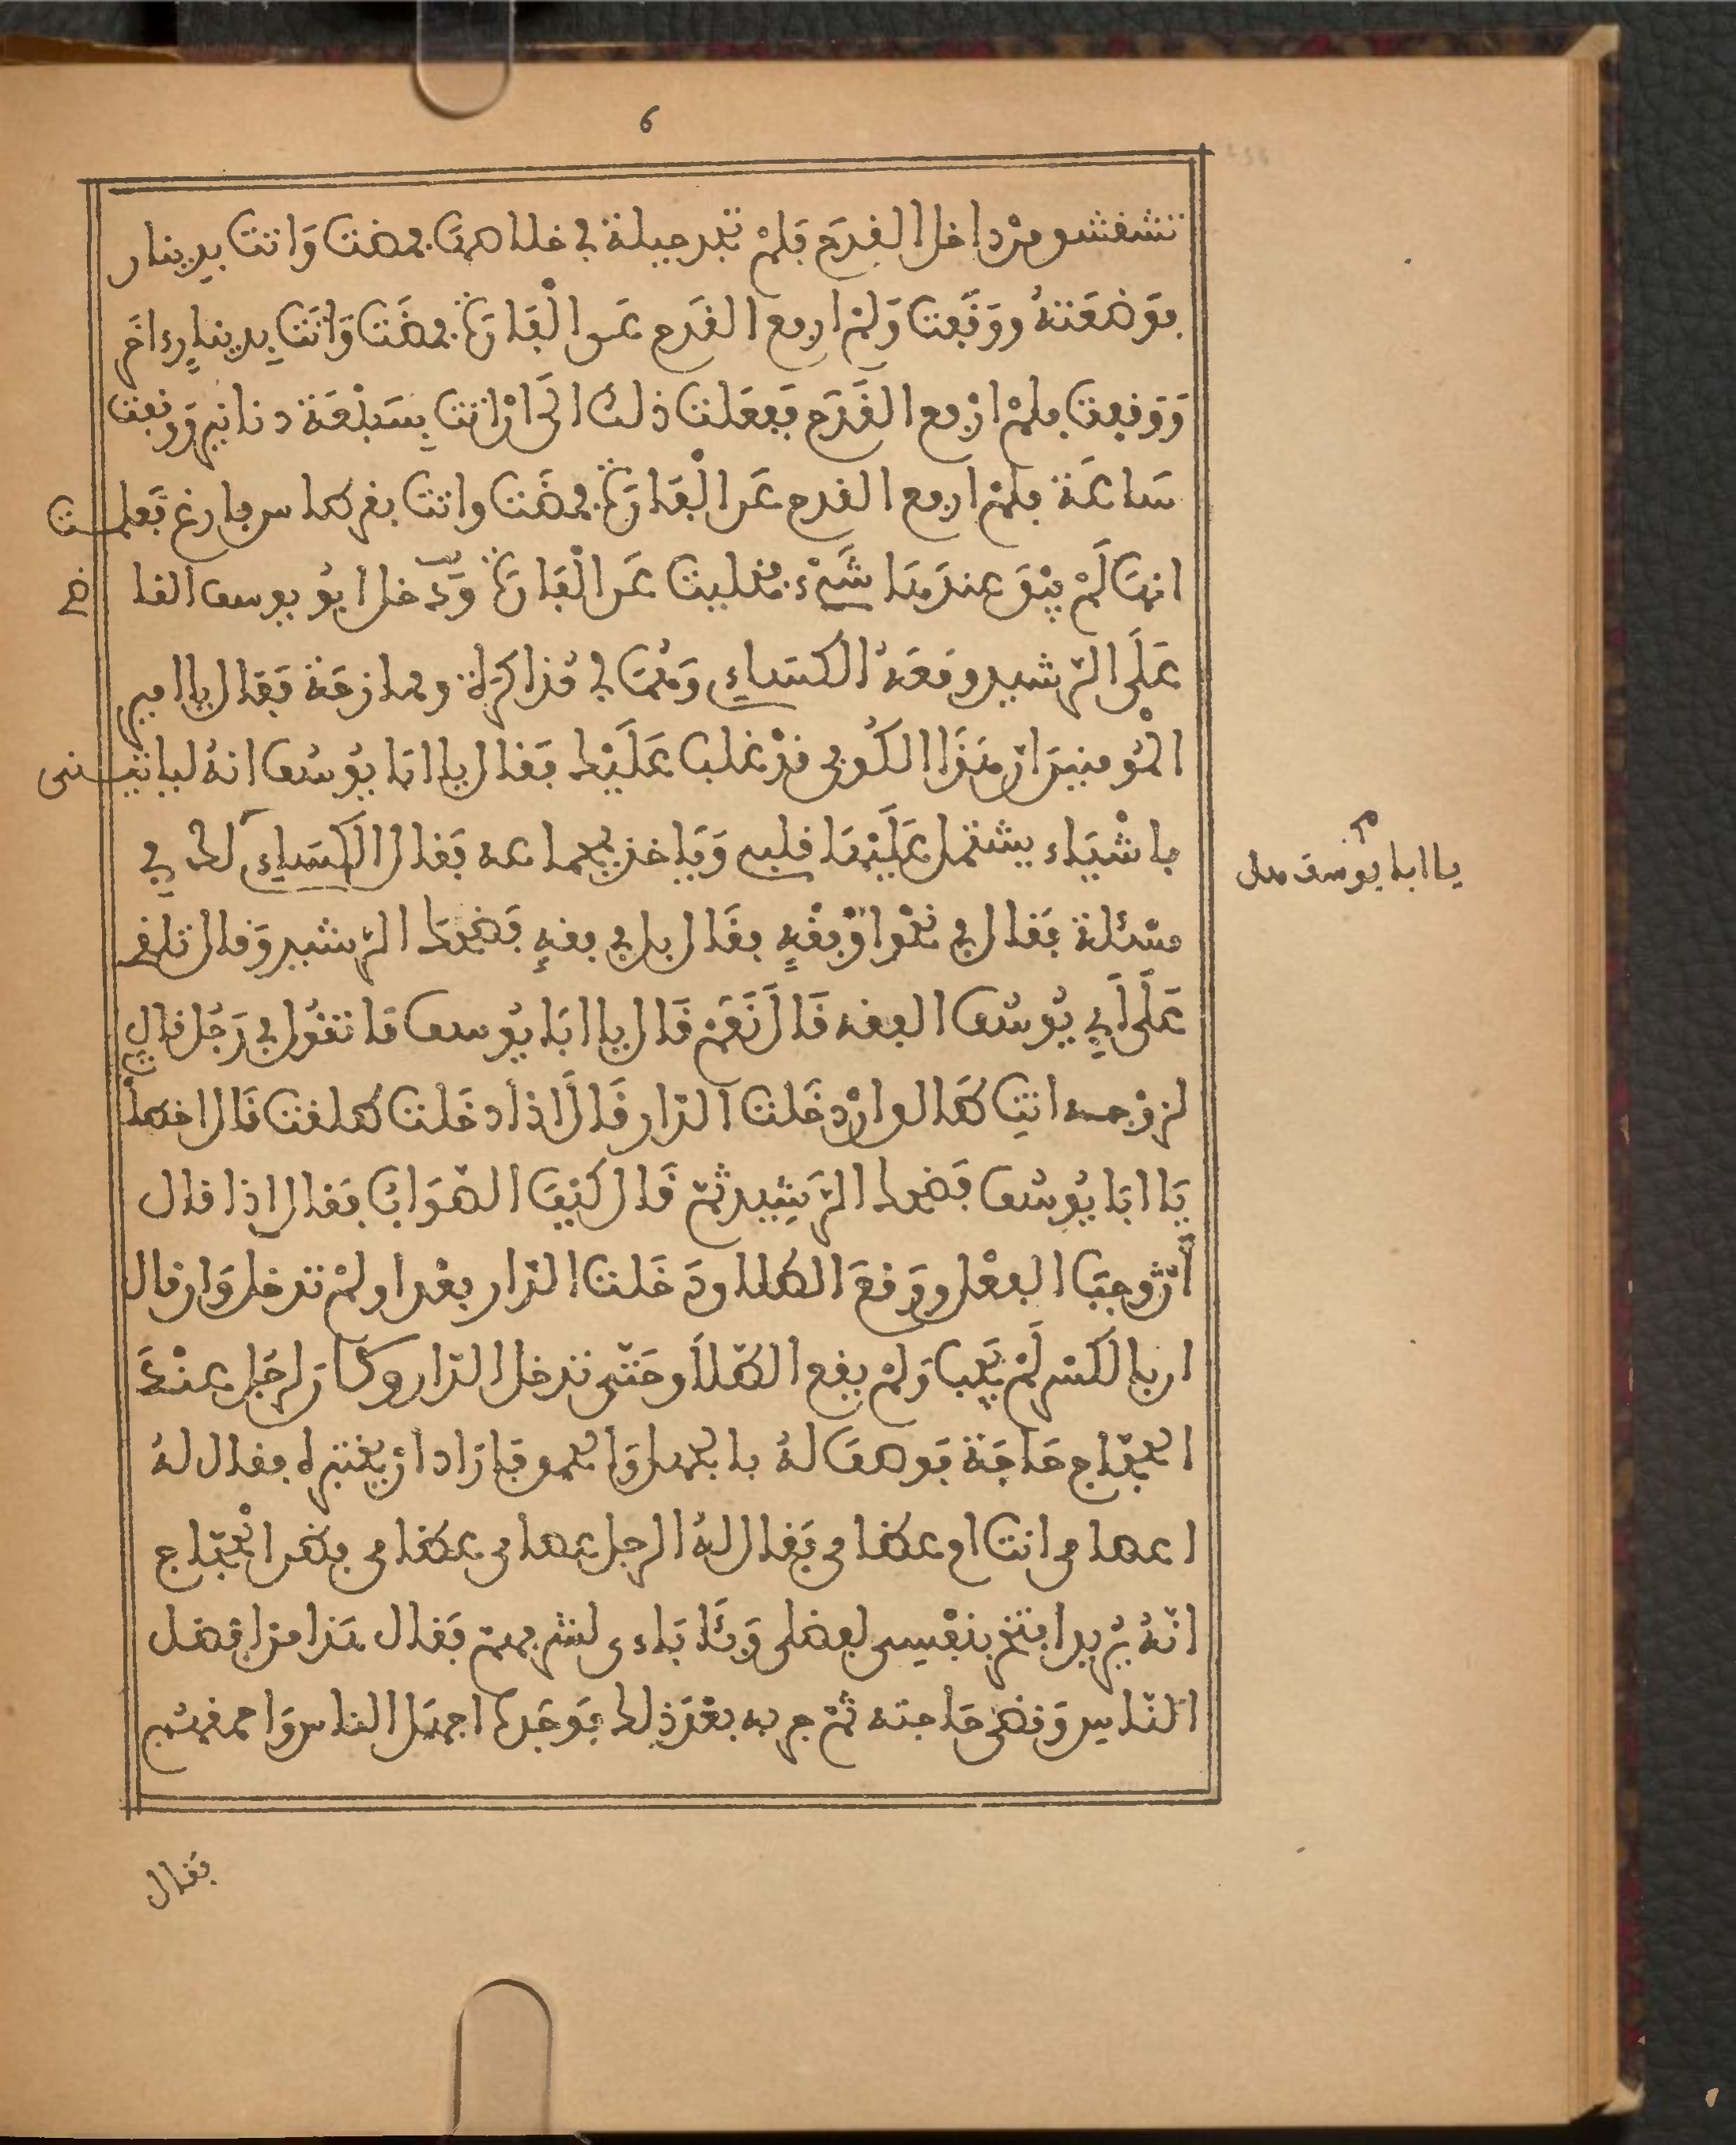 6
تشفشو من داخل القدح فلم تجد حيلة في خلاصها فمضت واتت بدينار
فوضعته ووقفت ولم ارفع القدح عن الْفارة فمضت واتت بدينار ءاخر
ووقفت فلم ارفع القدح ففعلت ذلك الى ان اتت بسبعة دنانير ووقفت
ساعة فلم ارفع القدح عن الْفارة فمضت واتت بقرطاس فارغ فعلمت
انها لم يبق عندها شيء فخليت عن الْفارة ودخل ابو يوسف القاضي
على الرشيد ومعه الكساءي وهما في مذاكرة وممازحة فقال يا امير
المومنين ان هذا الكوفي قد غلب عليك فقال يا ابا يوسف انه لياتيني
باشياء يشتمل عليها قلبي وياخذ بمجامعه فقال الكساءي لك في
يا ابا يوسف هل
مسئلة فقال في نحو او فقه فقال بل في فقه فضحك الرشيد وقال تلقي
على أبي يوسف الفقه قال نعم قال يا ابا يوسف ما تقول في رجل قال
لزوجته انت طالق ان دخلت الدار قال اذا دخلت طلقت قال اخطأ
يا ابا يوسف فضحك الرشيد ثم قال كيف الصواب فقال اذا قال
أن وجب الفعل ووقع الطلاق دخلت الدار بعد او لم تدخل وان قال
ان بالكسر لم يجب ولم يقع الطلاق حتى تدخل الدار وكان لرجل عند
الحجاج حاجة فوصف له بالجهل والحمق فاراد ان يختبره فقال له
اعصامي انت ام عظامي فقال له الرجل عصامي عظامي فظن الحجاج
انه يريد افتخر بنفسي لفضلي وبئاباءي لشرفهم فقال هذا من افضل
الناس وقضى حاجته ثم جربه بعد ذلك فوجده اجهل الناس واحمقهم
فقال